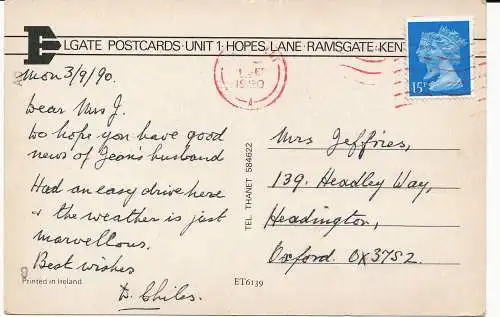 ELGATE POSTCARDS · UNIT 1 · HOPES LANE · RAMSGATE · KENT
Mon 3/9/90.
Dear Mrs J.
Do hope you have good
news of Jean's husband
Had an easy drive here
& the weather is just
marvellous.
Best wishes
D. Chiles.
Printed in Ireland
TEL THANET 584622
ET6139
1990
A
15
Mrs Jeffries,
139, Headley Way,
Headington,
Oxford. OX37SZ.